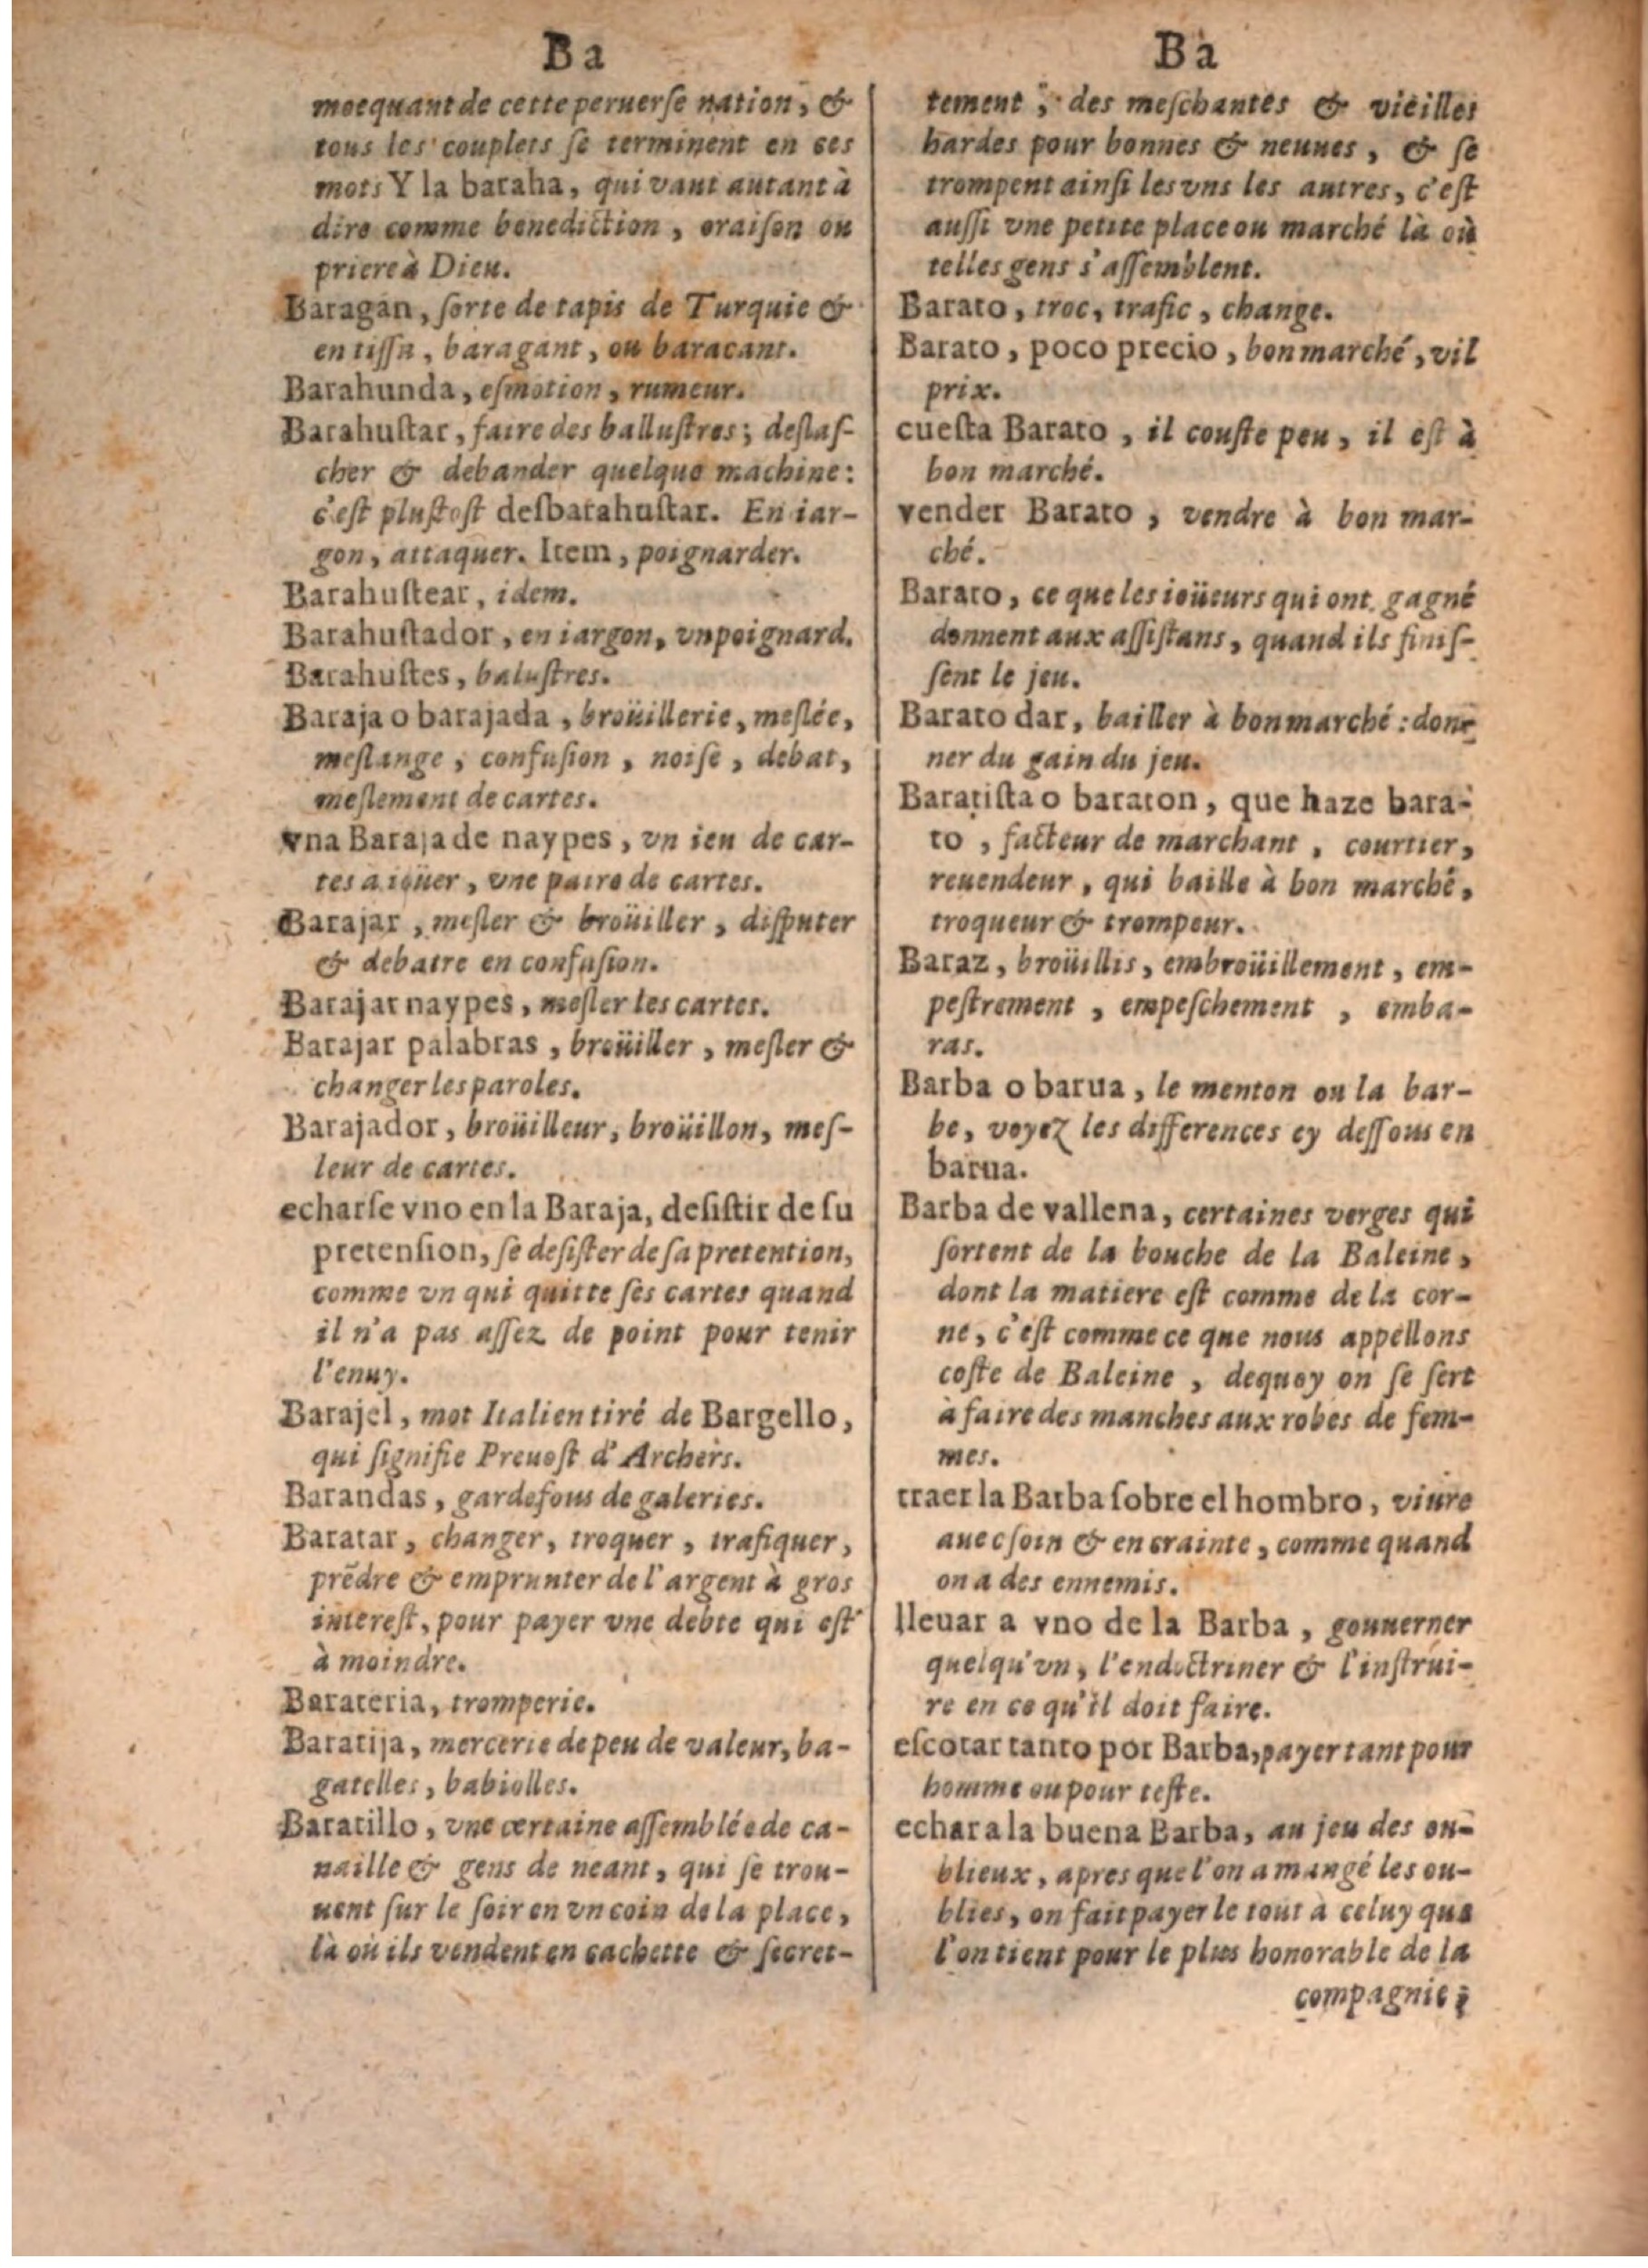 Ba
mocquant de cette peruerſe nation, &
tous les couplets ſe terminent en ces
mots Y la baraha, qui vaut autant à
dire comme benediction, oraiſon ou
priere à Dieu.
Baragan, ſorte de tapis de Turquie &
en tiſſu, baragant, ou baracant.
Barahunda, eſmotion, rumeur.
Barahuſtar, faire des balluſtres; deſlaſ-
cher & debander quelque machine:
c'eſt pluſtoſt deſbarahuſtar. En iar-
gon, attaquer. Item, poignarder.
Barahuſtear, idem.
Barahuſtador, en iargon, vn poignard.
Barahuſtes, baluſtres.
Baraja o barajada, broüillerie, meſlée,
meſlange, confuſion, noiſe, debat,
meſlement de cartes.
vna Baraja de naypes, vn ieu de car-
tes a ioüer, vne paire de cartes.
Barajar, meſler & broüiller, diſputer
& debatre en confuſion.
Barajar naypes, meſler les cartes.
Barajar palabras, broüiller, meſler &
changer les paroles.
Barajador, broüilleur, broüillon, meſ-
leur de cartes.
echarſe vno en la Baraja, deſiſtir de ſu
pretenſion, ſe deſiſter de ſa pretention,
comme vn qui quitte ſes cartes quand
il n'a pas aſſez de point pour tenir
l'enuy.
Barajel, mot Italien tiré de Bargello,
qui ſignifie Preuoſt d'Archers.
Barandas, gardefous de galeries.
Baratar, changer, troquer, trafiquer,
prẽdre & emprunter de l'argent à gros
intereſt, pour payer vne debte qui eſt
à moindre.
Barateria, tromperie.
Baratija, mercerie de peu de valeur, ba-
gatelles, babiolles.
Baratillo, vne certaine aſſemblée de ca-
naille & gens de neant, qui ſe trou-
uent ſur le ſoir en vn coin de la place,
là où ils vendent en cachette & ſecret-
Ba
tement, des meſchantes & vieilles
hardes pour bonnes & neuues, & ſe
trompent ainſi les vns les autres, c'eſt
auſſi vne petite place ou marché là où
telles gens s'aſſemblent.
Barato, troc, trafic, change.
Barato, poco precio, bon marché, vil
prix.
cueſta Barato, il couſte peu, il eſt à
bon marché.
vender Barato, vendre à bon mar-
ché.
Barato, ce que les ioüeurs qui ont gagné
donnent aux aſſiſtans, quand ils finiſ-
ſent le jeu.
Barato dar, bailler à bon marché: don-
ner du gain du jeu.
Baratiſta o baraton, que haze bara-
to, facteur de marchant, courtier,
reuendeur, qui baille à bon marché,
troqueur & trompeur.
Baraz, broüillis, embroüillement, em-
peſtrement, empeſchement, emba-
ras.
Barba o barua, le menton ou la bar-
be, voyez les differences cy deſſous en
barua.
Barba de vallena, certaines verges qui
ſortent de la bouche de la Baleine,
dont la matiere eſt comme de la cor-
ne, c'eſt comme ce que nous appellons
coſte de Baleine, dequoy on ſe ſert
à faire des manches aux robes de fem-
mes.
traer la Barba ſobre el hombro, viure
auec ſoin & en crainte, comme quand
on a des ennemis.
lleuar a vno de la Barba, gouuerner
quelqu'vn, l'endoctriner & l'inſtrui-
re en ce qu'il doit faire.
eſcotar tanto por Barba, payer tant pour
homme ou pour teſte.
echar a la buena Barba, au jeu des ou-
blieux, apres que l'on a mangé les ou-
blies, on fait payer le tout à celuy que
l'on tient pour le plus honorable de la
compagnie;